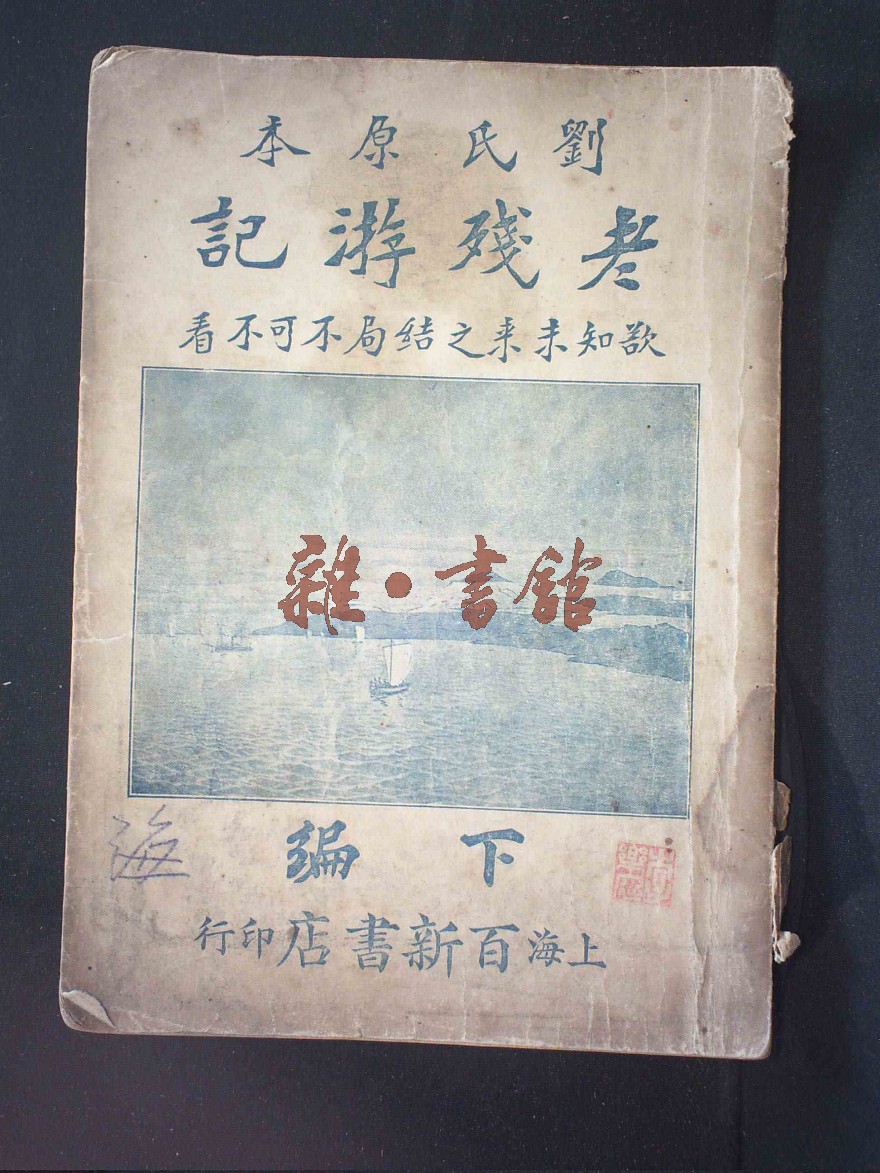 劉氏原本
老殘游記
欲知未來之結局不可不看
雜·書館
下編
海
上海百新書店印行